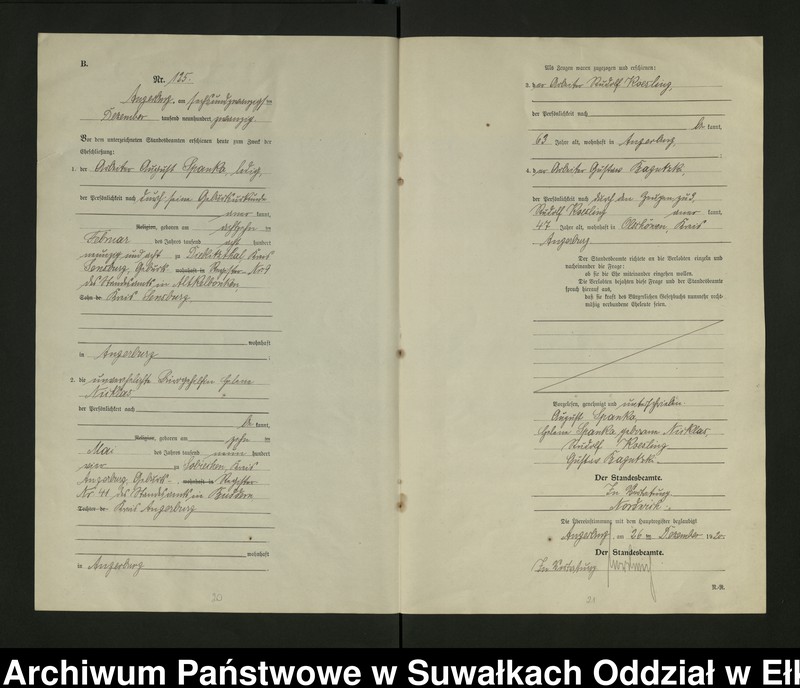 B.
Nr. 125.
Angerburg, am sechsundzwanzigsten
Dezember tausend neunhundert zwanzig.
Vor dem unterzeichneten Standesbeamten erschienen heute zum Zweck der
Eheschließung:
1. der Arbeiter August Spanka, ledig,
der Persönlichkeit nach durch seine Geburtsurkunde
kannt,
Religion, geboren am achtzehnten
Februar des Jahres tausend acht hundert
neunzig und acht zu Kreis
Sensburg, Geburts- wohnhaft in Register Nr. 9
des Standesamts in Altkelbonken
Sohn de Kreis Sensburg.
wohnhaft
in Angerburg ;
2. die unverehelichte Bürogehilfin Helene
Nicklas,
der Persönlichkeit nach
be kannt,
Religion, geboren am zehnten
Mai des Jahres tausend neun hundert
vier zu Kreis
Angerburg, Geburts- wohnhaft in Register
Nr. 41 des Standesamts in
Tochter de Kreis Angerburg
wohnhaft
in Angerburg
20
Als Zeugen waren zugezogen und erschienen:
3. der Arbeiter Rudolf Roesling,
der Persönlichkeit nach
be kannt,
63 Jahre alt, wohnhaft in Angerburg,
;
4. der Arbeiter Gustav
der Persönlichkeit nach durch den Zeugen zu 3,
Rudolf Roesling kannt,
47 Jahre alt, wohnhaft in Kreis
Angerburg
Der Standesbeamte richtete an die Verlobten einzeln und
nacheinander die Frage:
ob sie die Ehe miteinander eingehen wollen.
Die Verlobten bejahten diese Frage und der Standesbeamte
sprach hierauf aus,
daß sie kraft des Bürgerlichen Gesetzbuchs nunmehr recht-
mäßig verbundene Eheleute seien.
Vorgelesen, genehmigt und unterschrieben
August Spanka,
Helene Spanka geborene Nicklas,
Rudolf Roesling
Gustav
Der Standesbeamte.
In Vertretung
Die Übereinstimmung mit dem Hauptregister beglaubigt
Angerburg, am 26 ten Dezember 1920.
Der Standesbeamte.
In Vertretung
R.-R.
21
Archiwum Państwowe w Suwałkach Oddział w Ełk